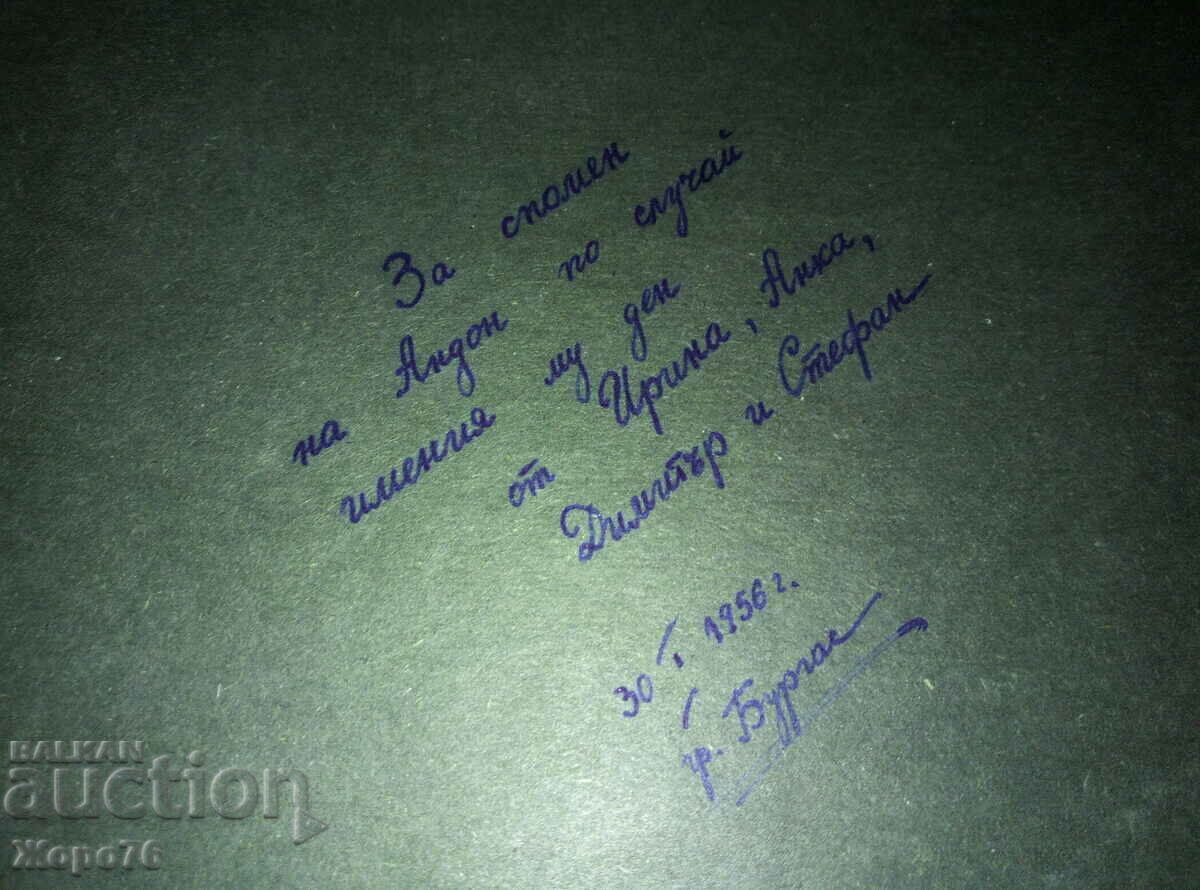 За спомен
на Андон по случай
имения му ден
от Ирина, Анка,
Димитър и Стефан
30/I. 1956 г.
гр. Бургас
BALKAN
auction
Жоро76